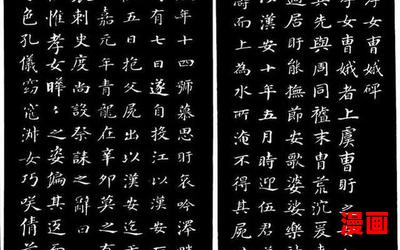 孝女曹娥碑
孝女曹娥者上虞曹盱之
其先與周同祖末冑荒沉爰
適居盱能撫節安歌婆娑樂
以漢安十年五月時迎伍君
濤而上為水所淹不得其屍
年十四號慕思盱哀吟澤畔
有七日遂自投江死經
五日抱父屍出以漢安迄
嘉元年青龍在辛卯莫之有
表 度尚設祭誄之辭
惟孝女曄々之姿偏其返而
色孔儀窈窕淑女巧咲倩
漫画